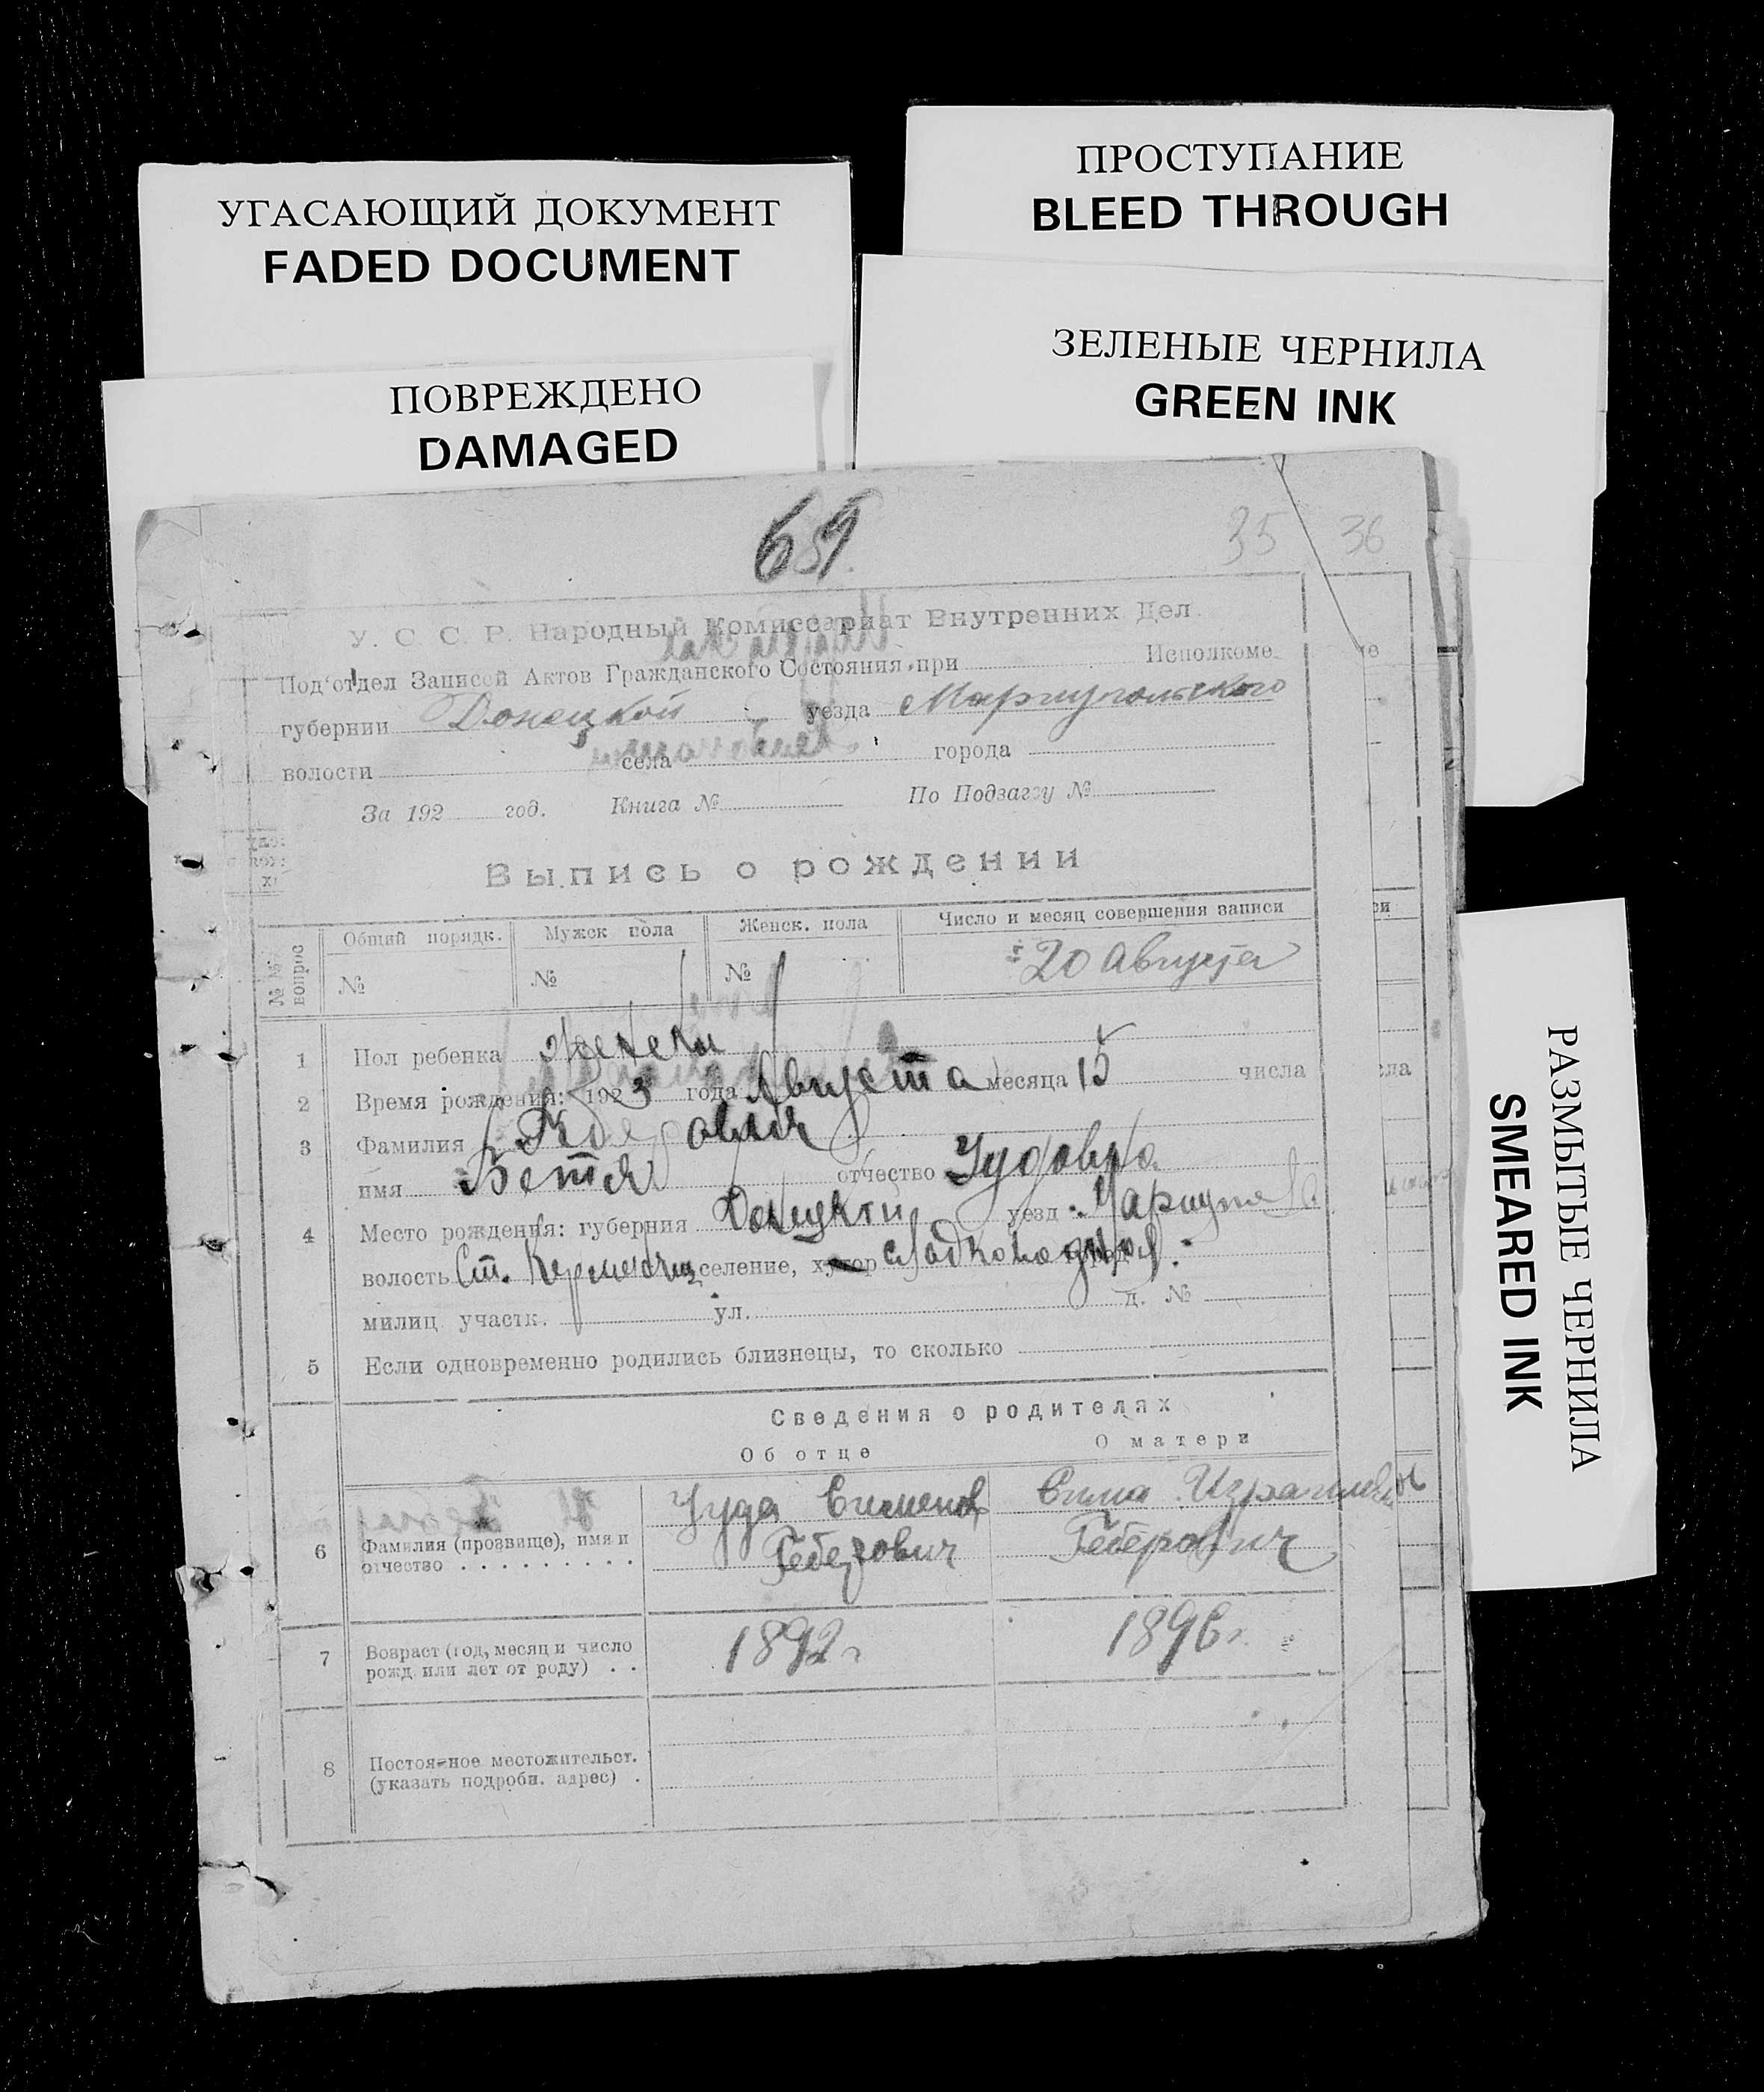 УГАСАЮЩИЙ ДОКУМЕНТ
FADED DOCUMENT
ПРОСТУПАНИЕ
BLEED THROUGH
ПОВРЕЖДЕНО
DAMAGED
ЗЕЛЕНЫЕ ЧЕРНИЛА
GREEN INK
35 36
У. С. С. Р. Народный Комиссариат Внутренних Дел.
Под'отдел Записей Актов Гражданского Состояния при Исполкоме
губернии Донецкой уезда Мариупольского
волости села города
За 192 год. Книга № По Подзагсу №
Выпись о рождении
№№ вопрос Общий порядк. Мужск пола Женск. пола Число и месяц совершения записи
№ № № 20 Августа
1 Пол ребенка женски
2 Время рождения: 1923 года Августа месяца 15 числа
3 Фамилия
имя Бетя отчество Иудовна
4 Место рождения: губерния Донецкти уезд
волость Ст. селение, хутор Сладководная
милиц участк. ул. д. №
5 Если одновременно родились близнецы, то сколько
Сведения о родителях
Об отце О матери
6 Фамилия (прозвище), имя и отчество Иуда Сименов Геберович Сима Израилевна Геберович
7 Возраст (год, месяц и число рожд или лет от роду) 1892 г 1896 г.
8 Постоянное местожительст. (указать подробн. адрес)
РАЗМЫТЫЕ ЧЕРНИЛА
SMEARED INK